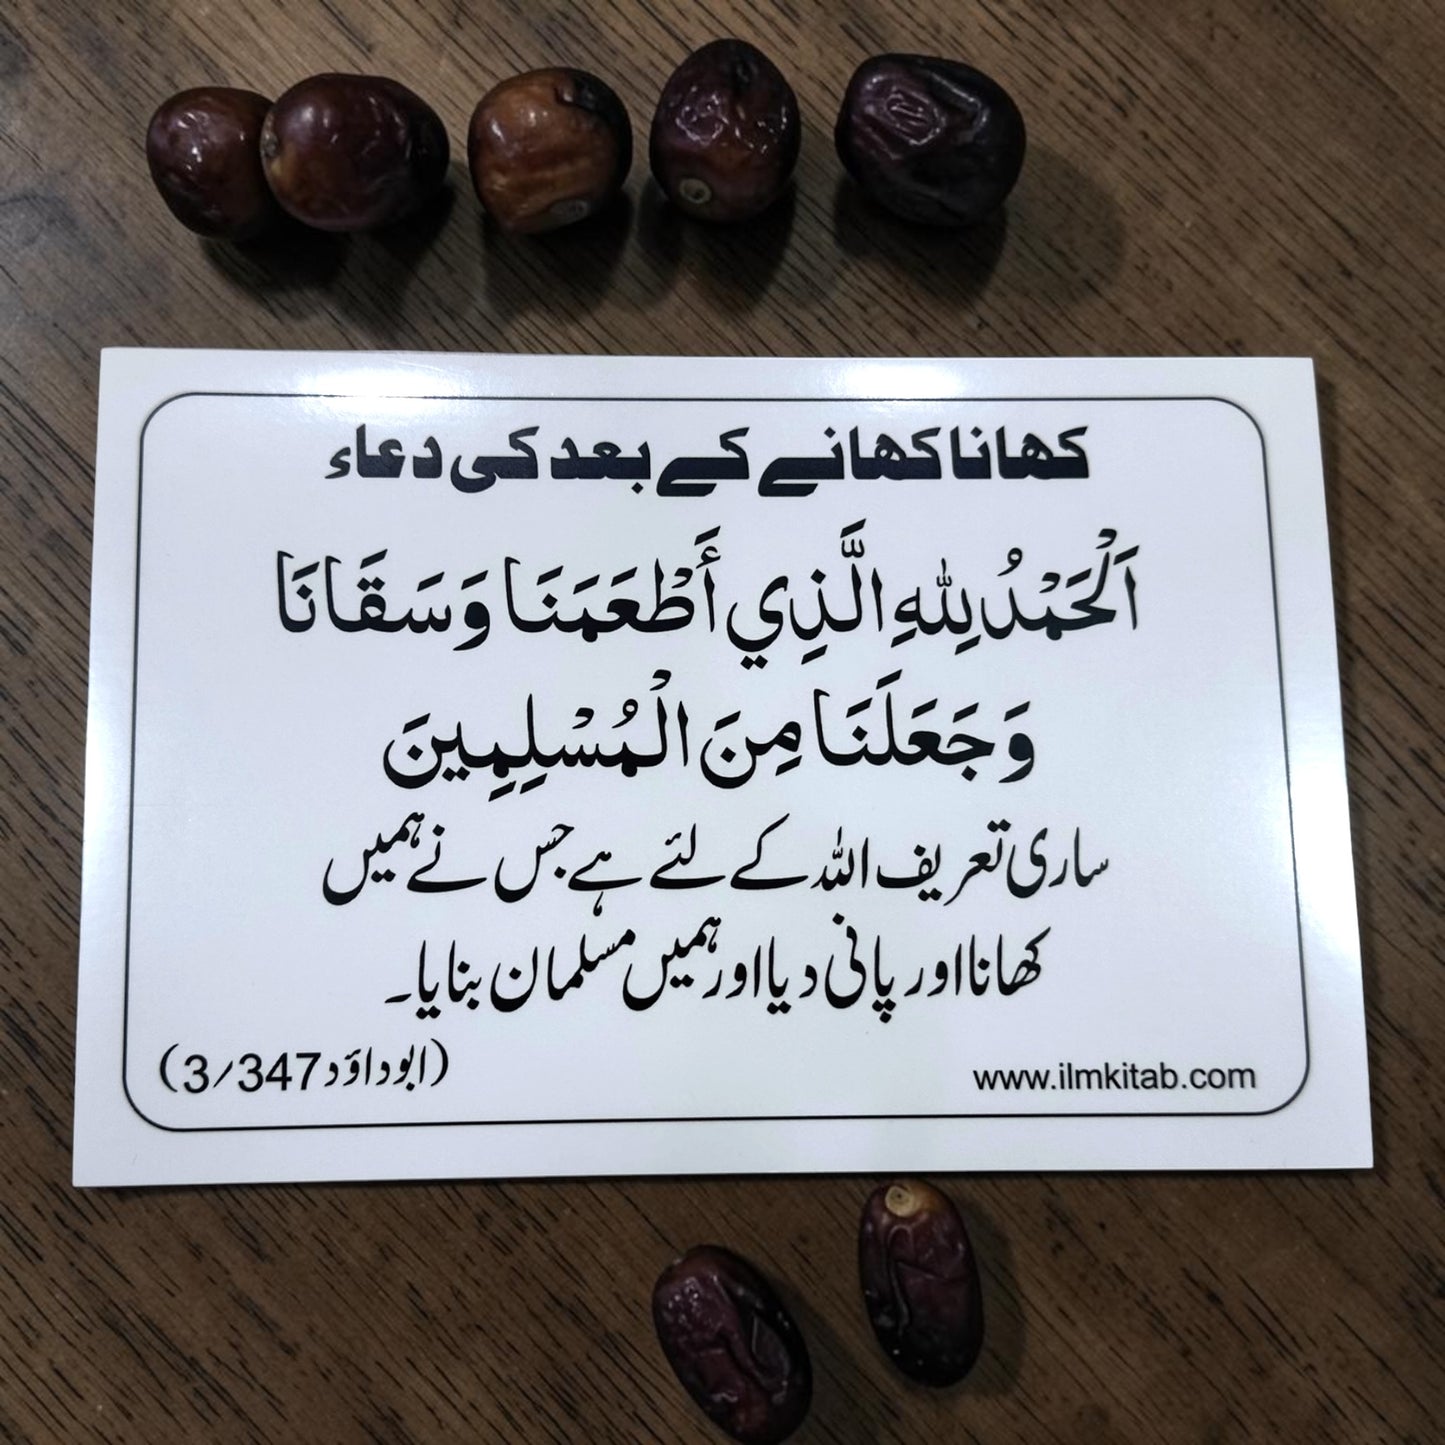 کھانا کھانے کے بعد کی دعاء
اَلْحَمْدُ لِلّٰهِ الَّذِي أَطْعَمَنَا وَسَقَانَا
وَجَعَلَنَا مِنَ الْمُسْلِمِينَ
ساری تعریف اللہ کے لئے ہے جس نے ہمیں
کھانا اور پانی دیا اور ہمیں مسلمان بنایا۔
(ابوداؤد 3/347)
www.ilmkitab.com